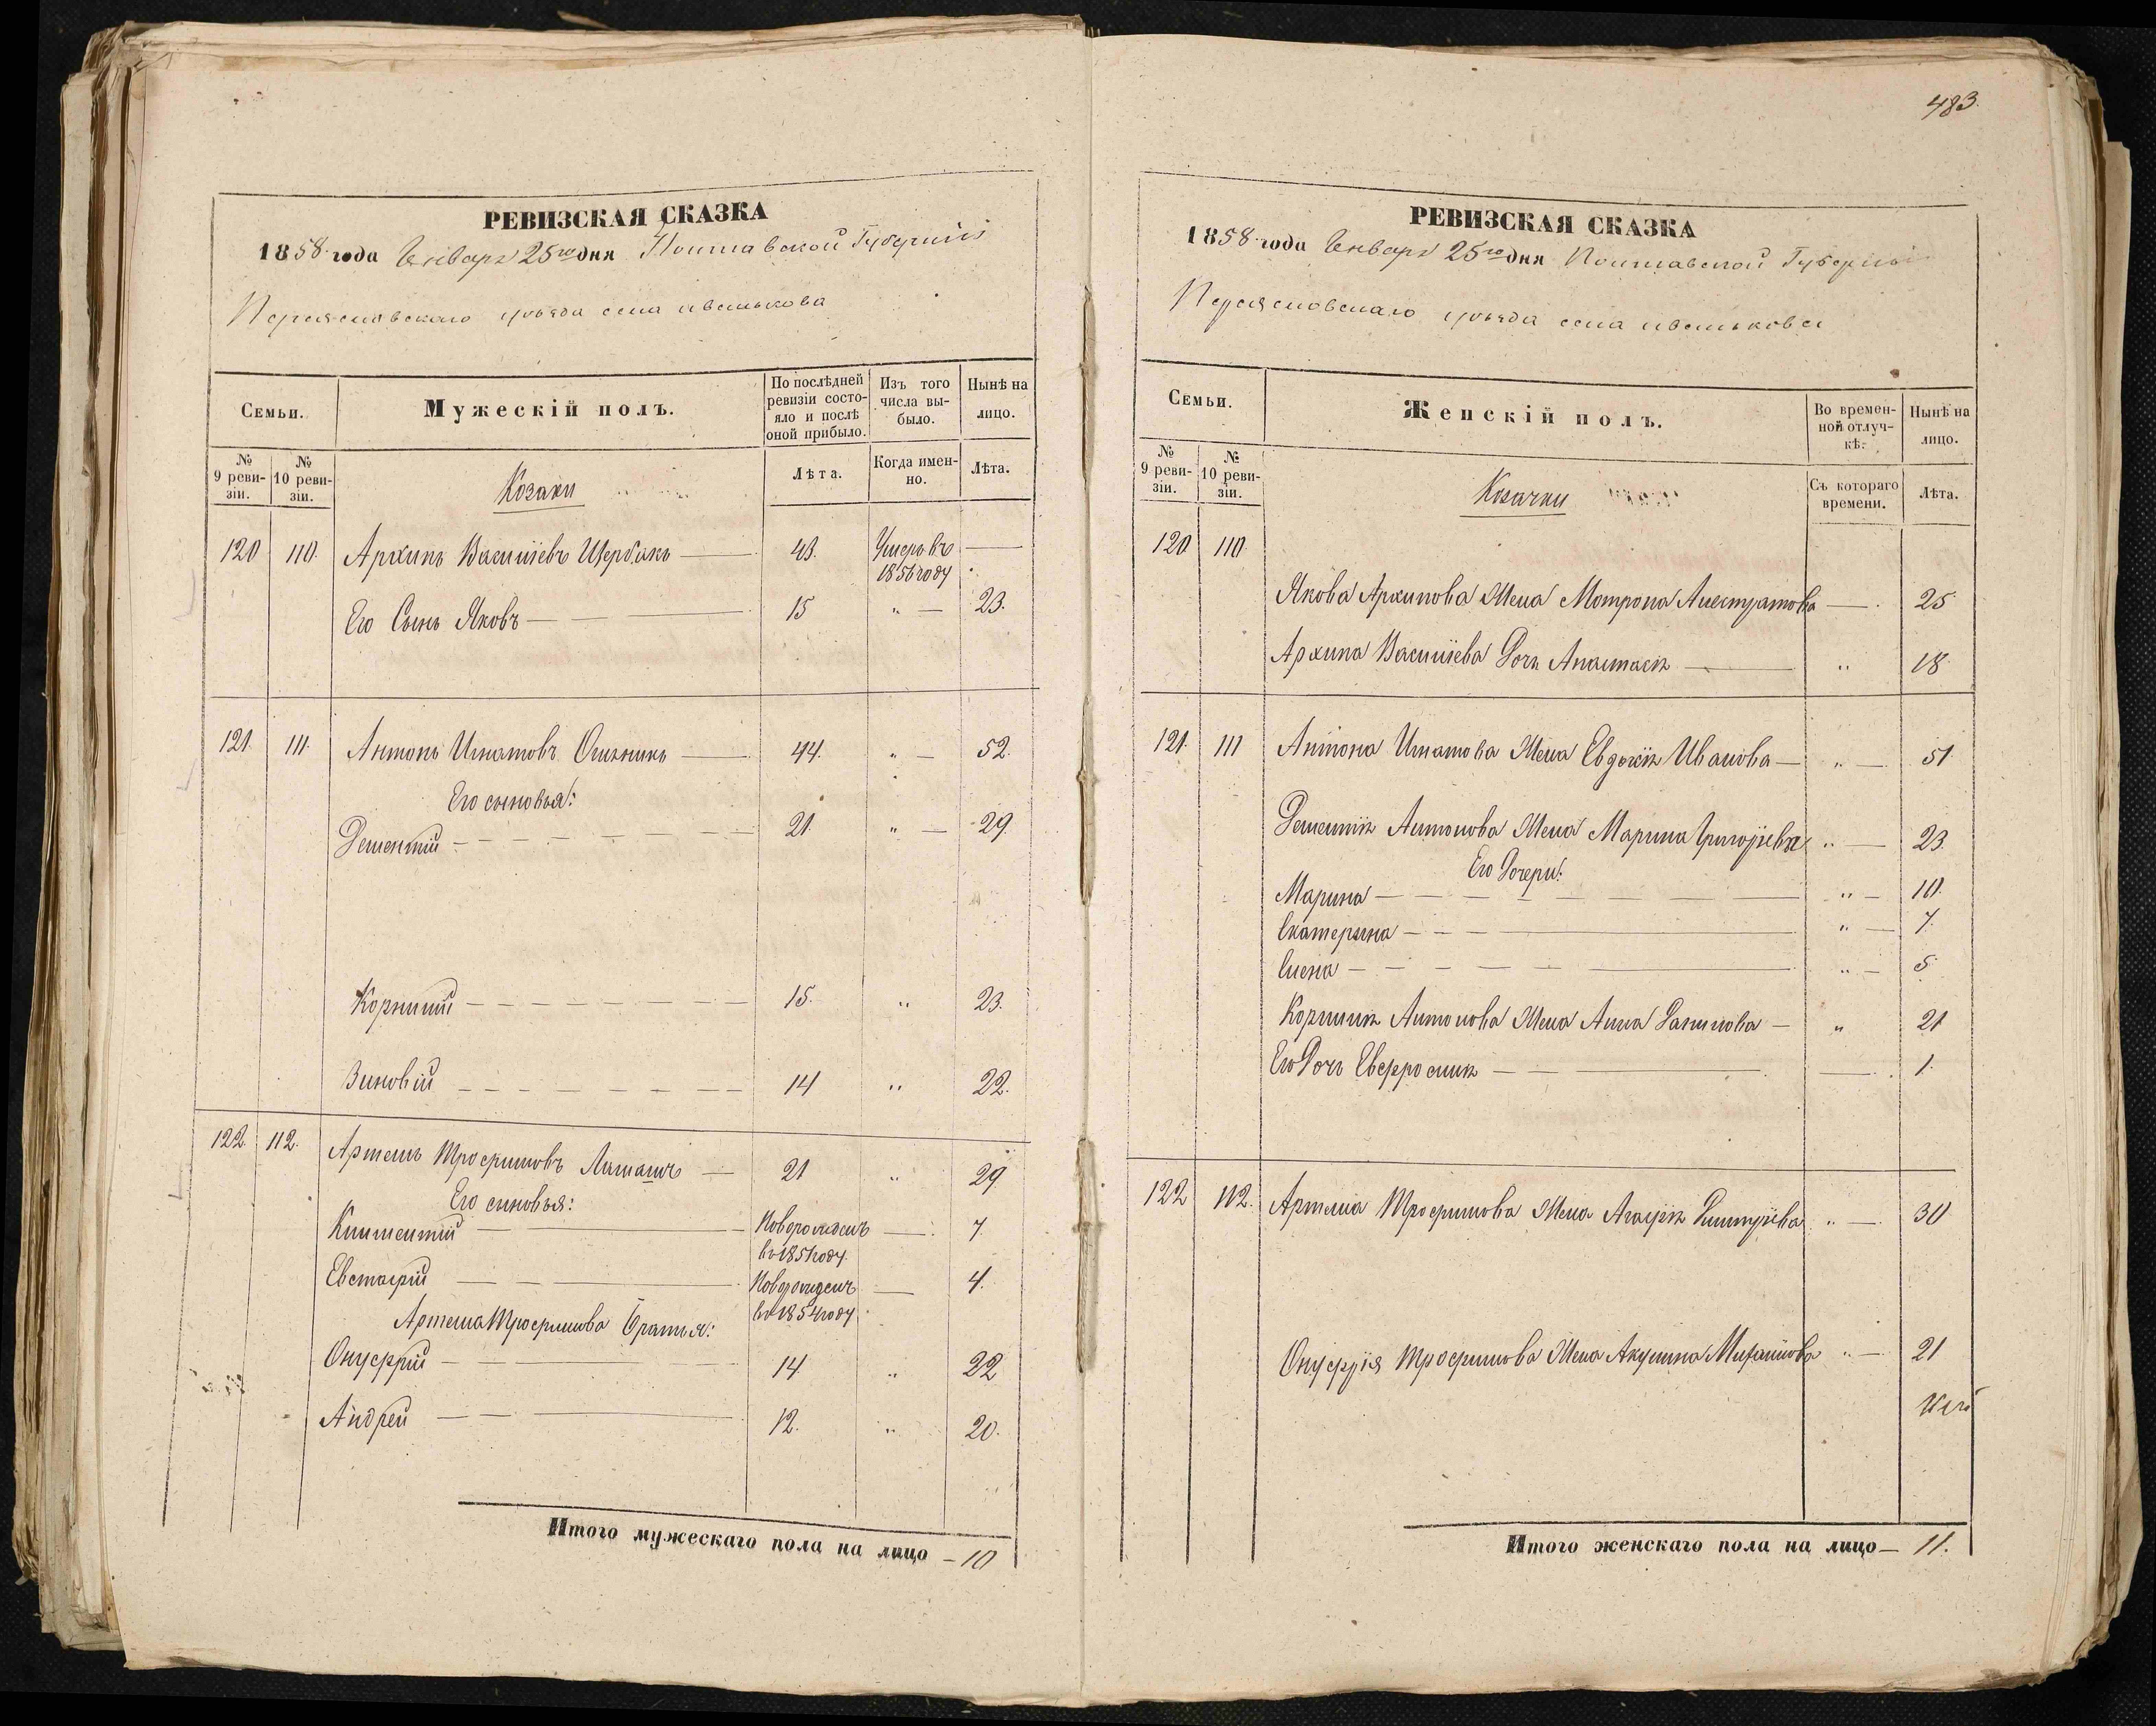 483.
РЕВИЗСКАЯ СКАЗКА
1858 года Генваря 25го дня Полтавской Губерніи
Переясловскаго уѣзда села ивањкова
Семьи.
Мужескій полъ.
По послѣдней ревизіи состояло и послѣ оной прибыло.
Изъ того числа выбыло.
Нынѣ на лицо.
№ 9 ревизіи.
№ 10 ревизіи.
Козаки
Лѣта.
Когда именно.
Лѣта.
120 110. Архипъ Василіевъ Щербакъ — 43. Умеръ въ —
1856 году
Его Сынъ Яковъ — 15 „ — 23.
121. 111. Антонъ Игнатовъ — 44. „ — 52.
Его сыновья:
Дементій — 21. „ — 29.
Корнилій — 15. „ 23.
Зиновій — 14 „ 22.
122. 112. Артемъ Трофимовъ — 21 „ 29
Его сыновья:
Климентій — Новорожденъ — 7.
въ 1851 году
Евстафій — Новорожденъ — 4.
въ 1854 году
Артема Трофимова Братья:
Онуфрій — 14. „ 22
Андрей — 12. „ 20.
Итого мужескаго пола на лицо — 10
РЕВИЗСКАЯ СКАЗКА
1858 года Генваря 25го дня Полтавской Губерніи
Переясловскаго уѣзда села иванькова
Семьи.
Женскій полъ.
Во временной отлучкѣ.
Нынѣ на лицо.
№ 9 ревизіи.
№ 10 ревизіи.
Козачки
Съ котораго времени.
Лѣта.
120. 110.
Якова Архипова Жена Мотрона — 25
Архипа Василіева Дочь Анастасія — „ 18
121. 111 Антона Игнатова Жена Евдокія Иванова — „ — 51.
Дементія Антонова Жена Марина Григоріева „ — 23.
Его Дочери:
Марина — „ — 10.
Екатерина — „ — 7.
Елена — „ — 5
Корнилія Антонова Жена Анна Данилова — „ 21
Его Дочь Евфросинія — — 1.
122 112. Артема Трофимова Жена Агафія Дмитріева „ — 30
Онуфрія Трофимова Жена Акулина Михайлова „ — 21
Итого женскаго пола на лицо — 11.